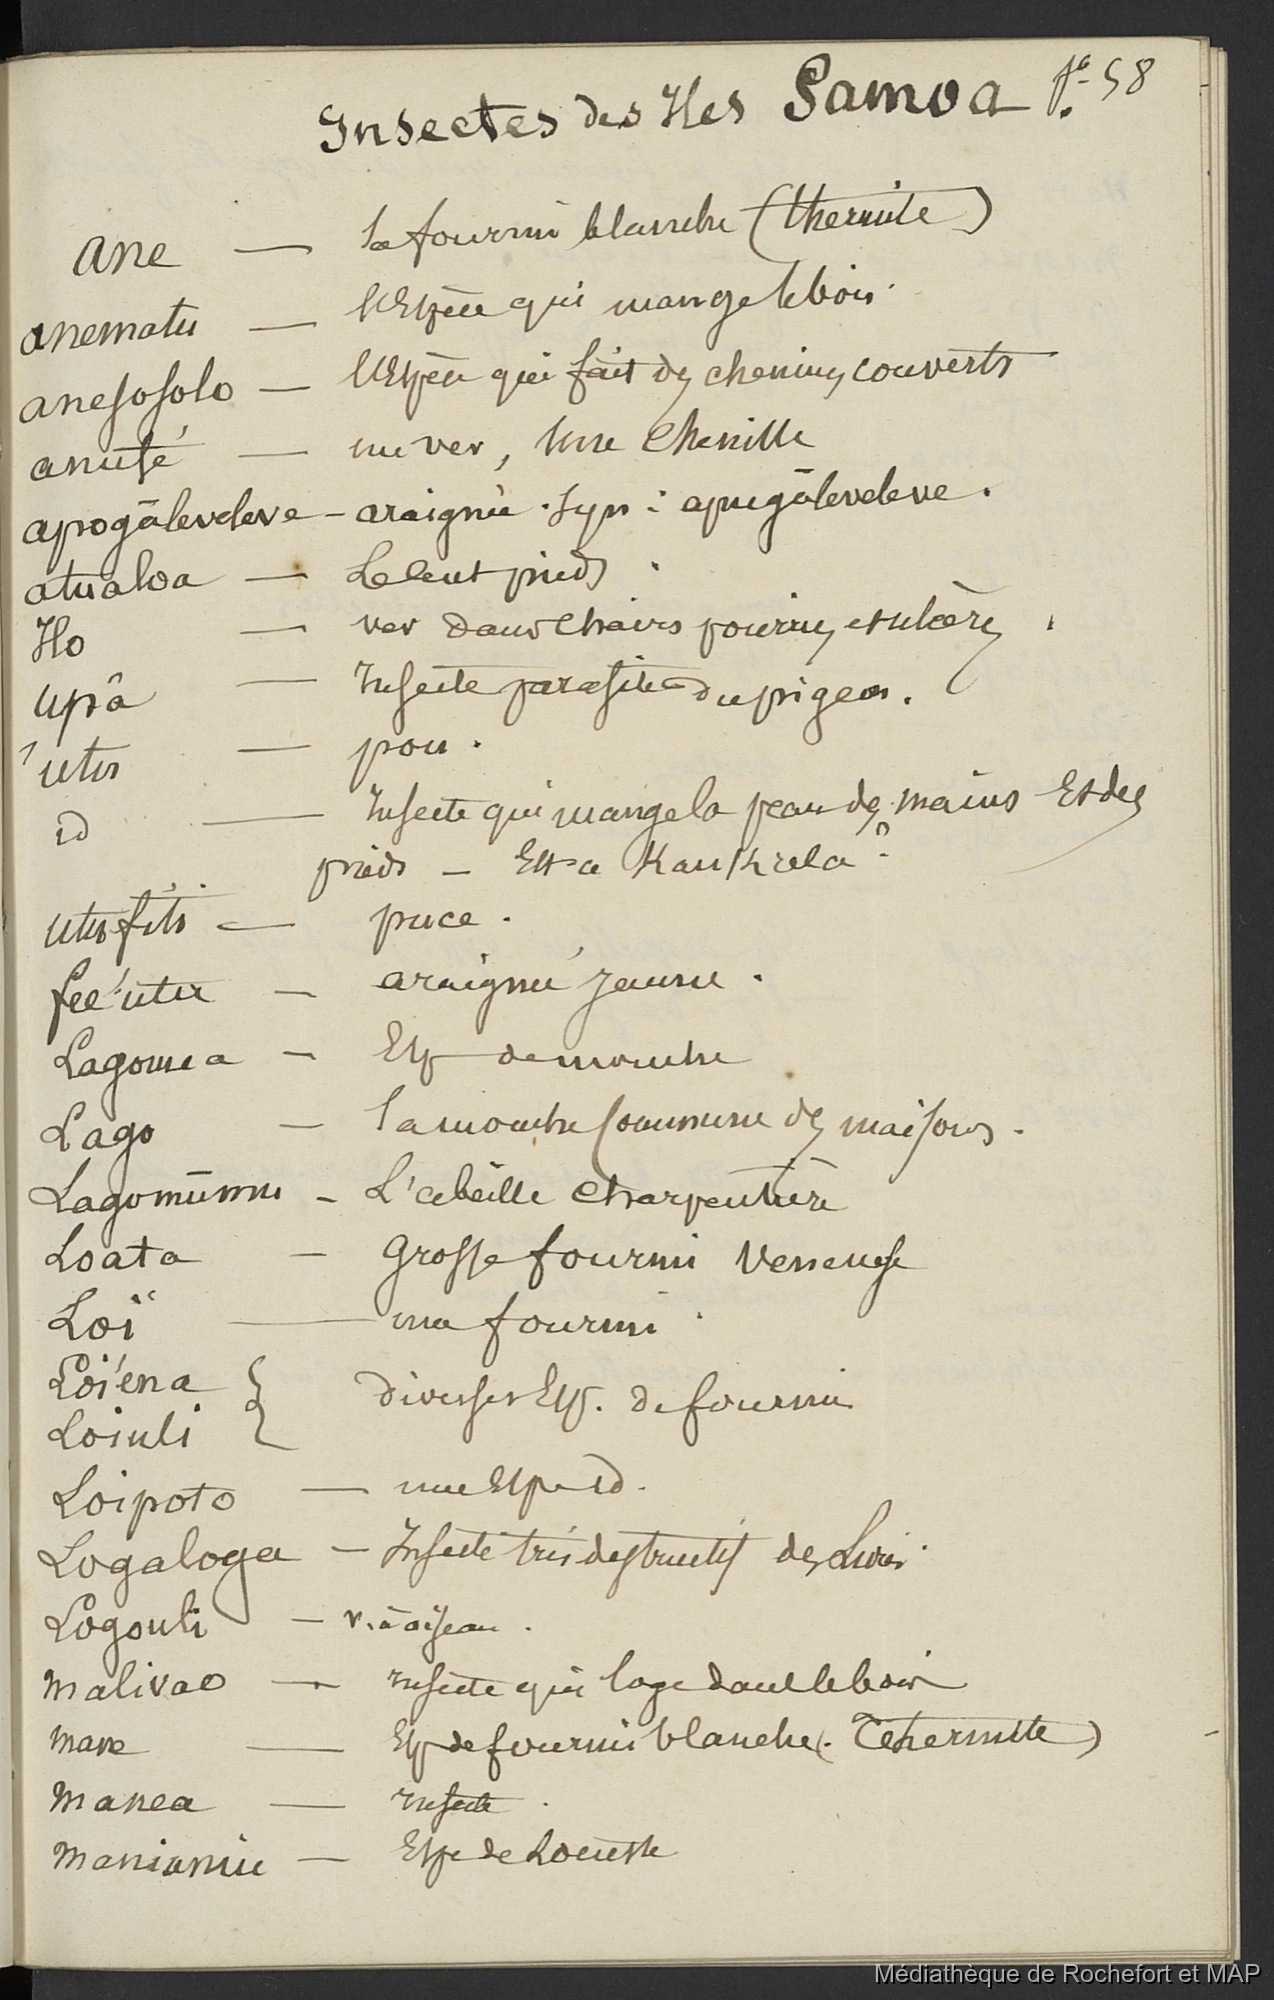 Insectes des Iles Samoa fo. 58
ane — la fourmi blanche (thermite)
anematu — l'Espèce qui mange le bois.
anesosolo — l'Espèce qui fait des chemins couverts
anufé — un ver, une chenille
apogāleveleve — araignée. Syn : apugāleveleve.
atualoa — Le Cent pieds.
Ilo — ver dans chairs pourries et ulcères.
upâ — Insecte parasite du pigeon.
'utu — pou.
id — Insecte qui mange la peau des mains Et des
pieds — Est-ce Kankrela ?
utufiti — puce.
fee'utu — araignée jaune.
Lagomea — Esp de mouche
Lago — la mouche Commune des maisons.
Lagomūmu — L'abeille Charpentière
Loata — Grosse fourmi Veneneuse
Loï — une fourmi.
Loi'ena
Loiuli } diverses Esp. de fourmi
Loipoto — une Espe id.
Logaloga — Insecte très destructif des Livres.
Logouli — v. à oiseau.
malivao — insecte qui loge dans le bois
mane — Esp de fourmi blanche (. Tehermite)
manea — insecte.
maniania — Espe de Locuste
Médiathèque de Rochefort et MAP